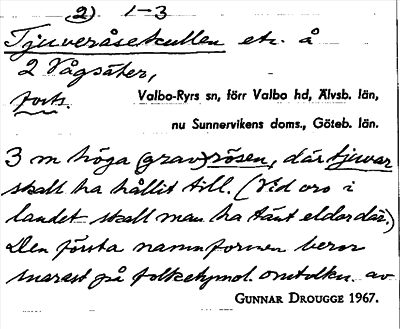 2) 1-3
Tjuveråsekullen etc. å
2 Vågsäter,
forts.
Valbo-Ryrs sn, förr Valbo hd, Älvsb. län,
nu Sunnervikens doms., Göteb. län.
3 m höga (grav)rösen, där tjuvar
skall ha hållit till. (Vid oro i
landet skall man ha tänt eldar där.)
Den första namnformen beror
snarast på folketymol. omtolkn. av
GUNNAR DROUGGE 1967.